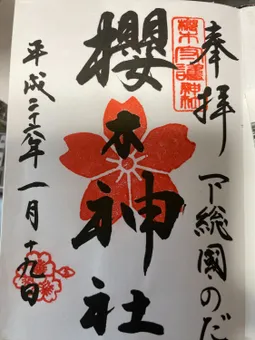 奉拝 下総國のだ
櫻木神社
平成二十六年一月十九日